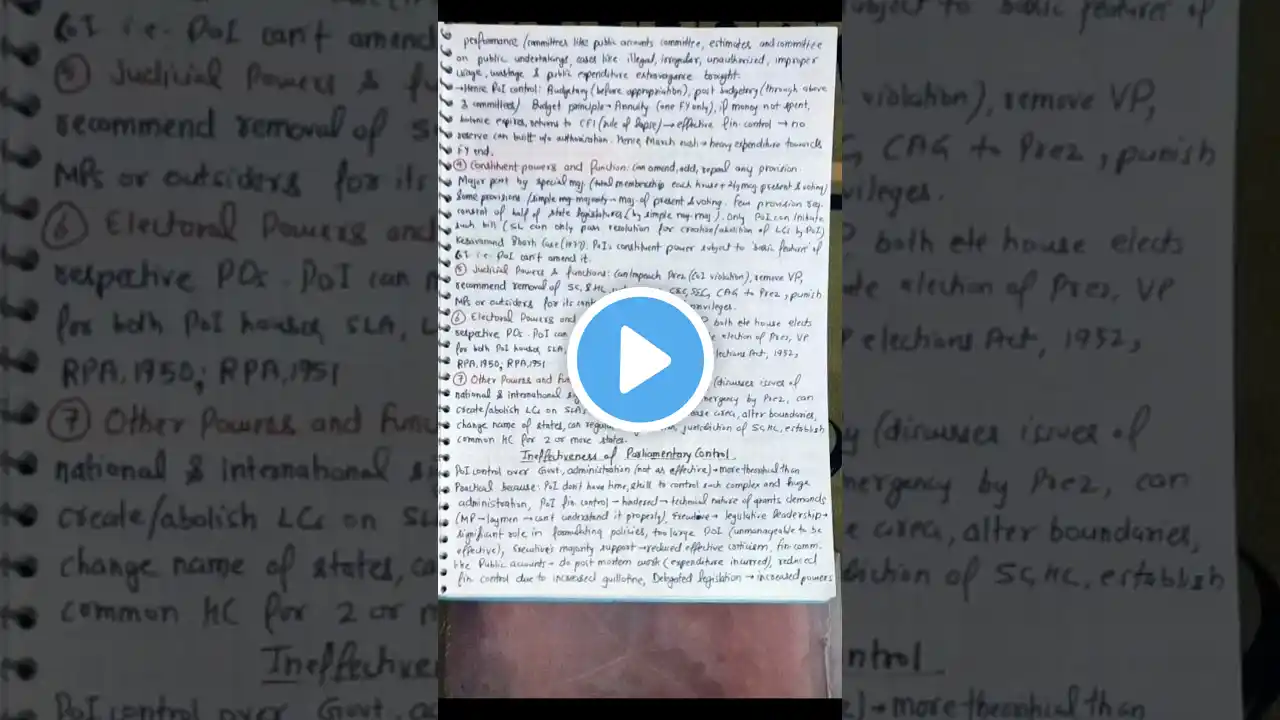 performance (committees like public accounts committee, estimates and committee
on public undertakings, cases like illegal, irregular, unauthorized, improper
usage, wastage & public expenditure extravagance brought.
→ Hence PoI control: Budgetary (before appropriation), post budgetary (through above
3 committees) Budget principle → Annuity (one FY only), if money not spent,
balance expires, returns to CFI (rule of lapse) → effective fin. control → no
reserve can built w/o authorization. Hence March rush → heavy expenditure towards
FY end.
④ Constituent powers and function: can amend, add, repeal any provision.
Major part by special maj. (total membership each house + 2/3 maj present & voting)
Some provisions / simple maj → maj. of present & voting. Few provision req.
consent of half of state legislatures (by simple maj.). Only PoI can initiate
such bill (SL can only pass resolution for creation/abolition of LCs by PoI)
Kesavanand Bharti Case (1973): PoI's constituent power subject to 'basic features' of
i.e. PoI can't amend it.
⑤ Judicial Powers & functions: can impeach Prez (CoI violation), remove VP,
recommend removal of SC, CAG to Prez, punish
MPs or outsiders for its
⑥ Electoral Powers and both ele house elects
respective POs. PoI can election of Prez, VP
for both PoI houses, SLA, elections Act, 1952,
RPA, 1950; RPA, 1951
⑦ Other Powers and (discusses issues of
national & international emergency by Prez, can
create/abolish LCs on area, alter boundaries,
change name of states, can jurisdiction of SC, HC, establish
common HC for 2 or more states.
Ineffectiveness of Parliamentary Control
PoI control over Govt, administration (not as effective) → more theoretical than
Practical because: PoI don't have time, skill to control such complex and huge
administration, PoI fin. control → hindered → technical nature of grants demands
(MP → laymen → can't understand it properly), Executive → legislative leadership →
significant role in formulating policies, too large PoI (unmanageable to be
effective), Executive's majority support → reduced effective criticism, fin. comm.
like Public accounts → do post mortem work (expenditure incurred), reduced
fin control due to increased guillotine, Delegated legislation → increased powers